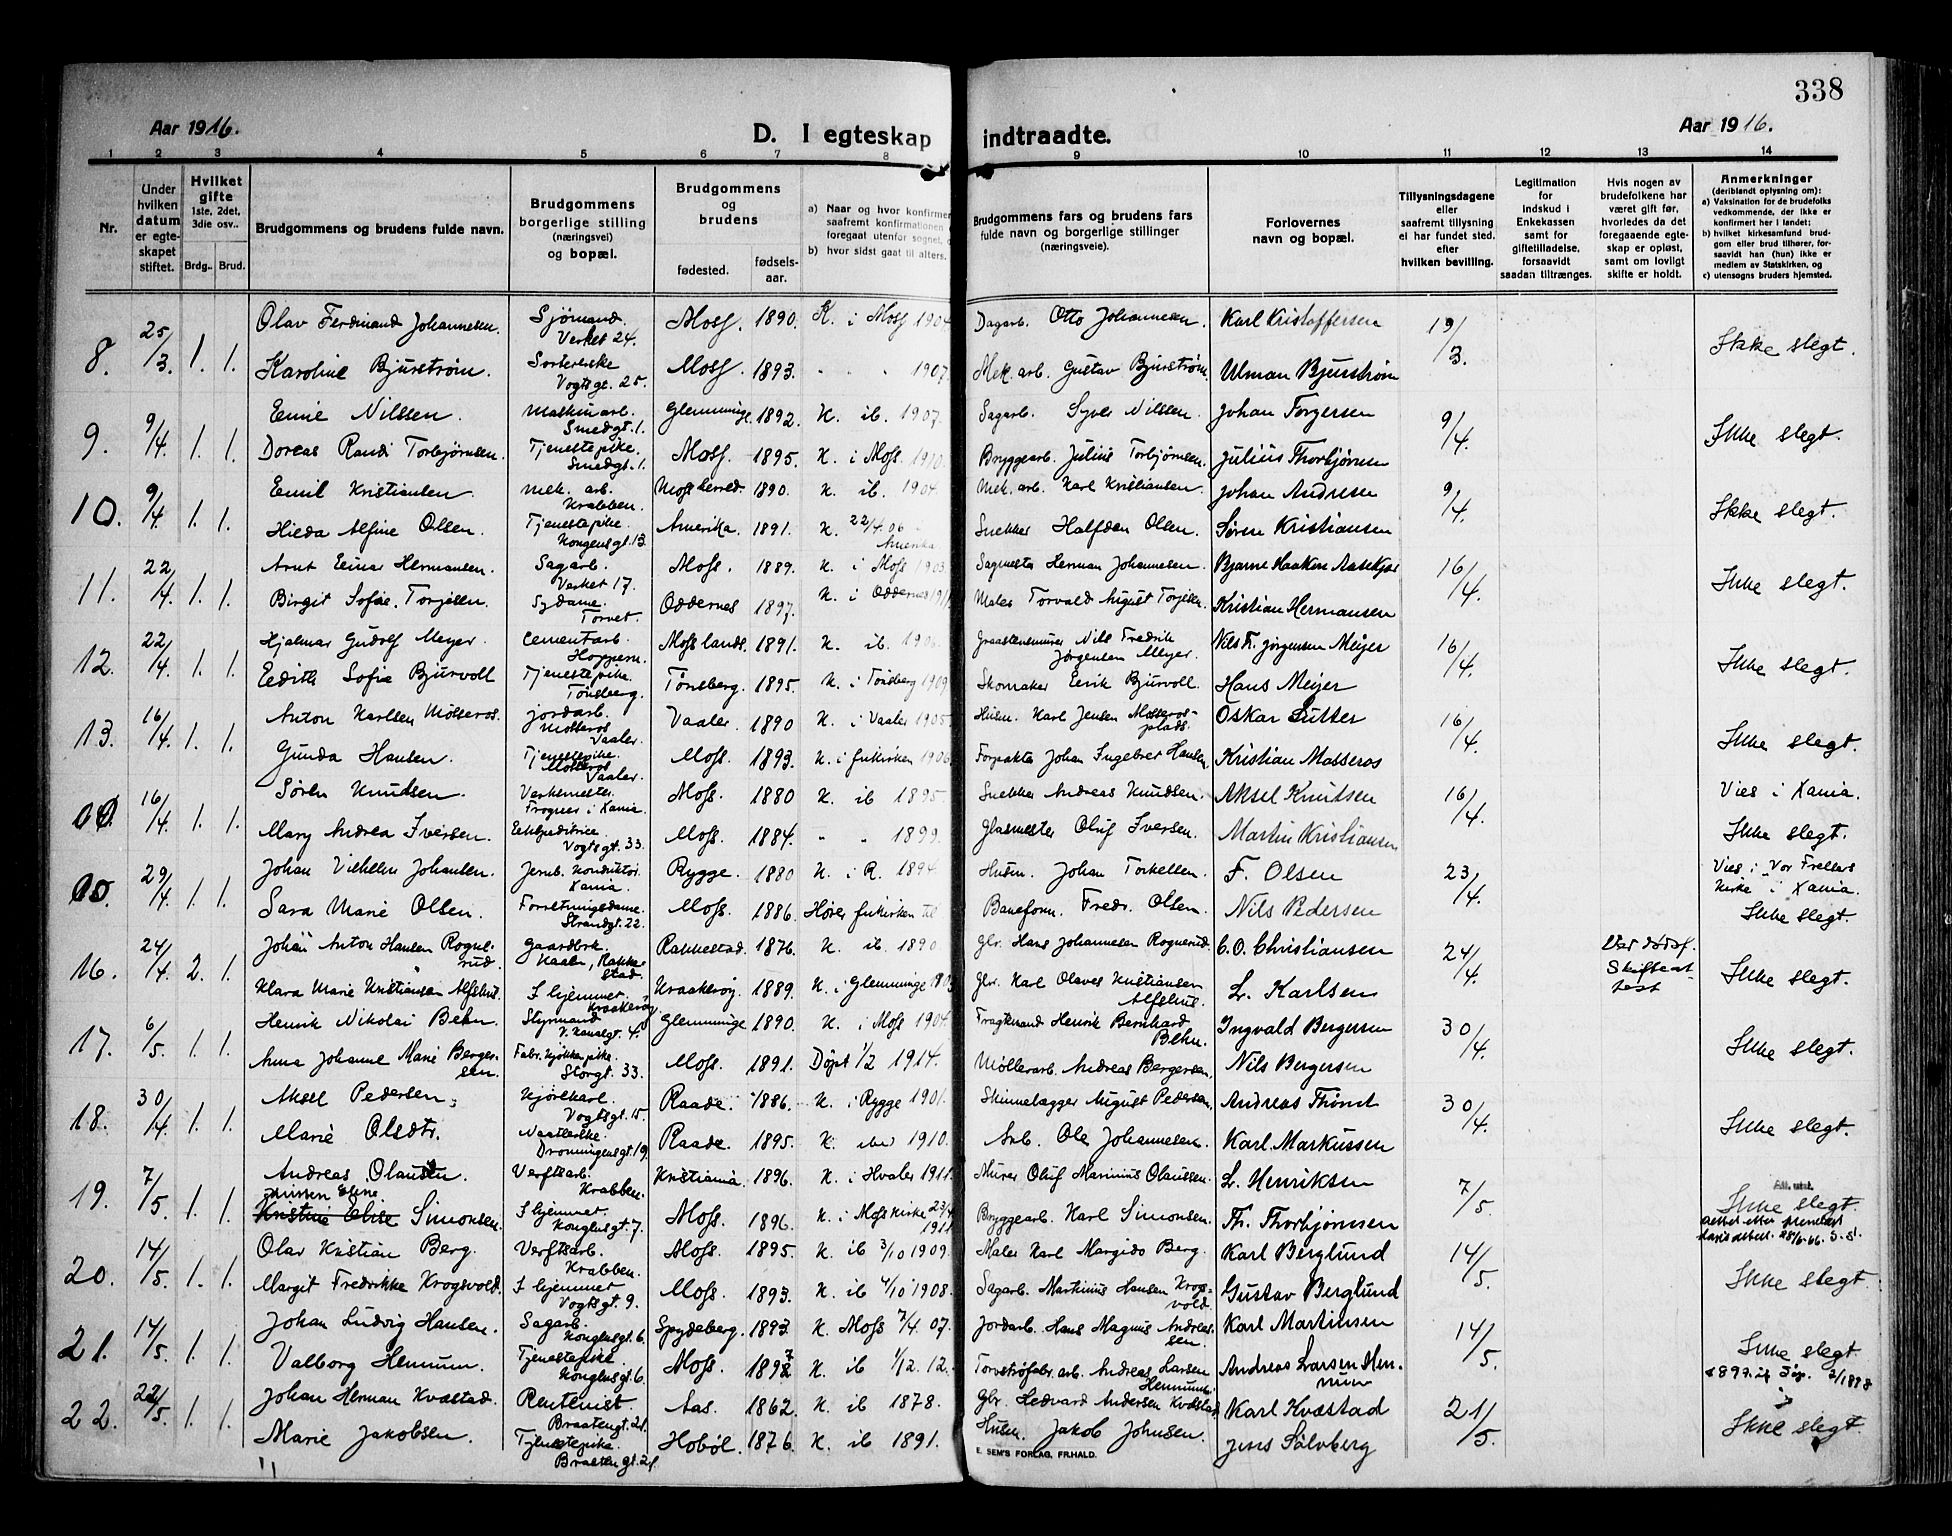 338
Aar 1916.
D. I egteskap indtraadte.
Aar 1916.
1 2 3 4 5 6 7 8 9 10 11 12 13 14
Nr.
Under hvilken datum er egteskapet stiftet.
Hvilket gifte 1ste, 2det, 3die osv..
Brdg.. Brud.
Brudgommens og brudens fulde navn.
Brudgommens borgerlige stilling (næringsvei) og bopæl.
Brudgommens og brudens
fødested.
fødselsaar.
a) Naar og hvor konfirmer
saafremt konfirmationen
foregaat utenfor sognet,
b) hvor sidst gaat til alters.
Brudgommens fars og brudens fars
fulde navn og borgerlige stillinger
(næringsveie).
Forlovernes
navn og bopæl.
Tillysningsdagene
eller
saafremt tillysning
ei har fundet sted.
efter
hvilken bevilling.
Legitimation
for
Indskud i
Enkekassen
samt for
giftetilladelse,
forsaavidt
saadan tiltrænges.
Hvis nogen av
brudefolkene har
været gift før,
hvorledes da det
foregaaende egteskap er opløst,
samt om lovligt
skifte er holdt.
Anmerkninger
(deriblandt oplysning om):
a) Vaksination for de brudefolks
vedkommende, der ikke er
konfirmert her i landet:
b) hvilket kirkesamfund brudgom eller brud tilhører, forsaavidt han (hun) ikke er
medlem av Statskirken, og
c) utensogns bruders hjemsted.
8. 25/3 1. 1. Olav Ferdinand Johannesen. Sjømand. Verket 24. Moss. 1890. K. i Moss 1904 Dagarb. Otto Johannesen. Karl Kristoffersen 19/3. Ikke slegt.
Karoline Bjurstrøm. Vogtsgt. 25. Moss. 1893. " " 1907 Mek. arb. Gustav Bjurstrøm. Ulman Bjurstrøm
9. 9/4. 1. 1. Nilssen. Maskinarb. Smedgt. 1. Glemminge. 1892. K. ib. 1907. Sagarb. Syver Nilssen. Johan Torgersen 9/4. Ikke slegt.
Doreas Randi Torbjørnsen. Tjenestepike. Smedgt. 1. Moss. 1895. K. i Moss. 1910. Bryggearb. Julius Torbjørnsen. Julius Thorbjørnsen
10. 9/4. 1. 1. Emil Kristiansen. Mek. arb. Krabben. Moss herred. 1890. K. ib. 1904. Mek. arb. Karl Kristiansen. Johan Andresen 9/4. Ikke slegt.
Hilda Alfine Olsen. Tjenestepike. Kongensgt. 13. Amerika 1891. K. 22/4.06 Amerika Snekker Halfdan Olsen. Søren Kristiansen
11. 22/4. 1. 1. Arnt Einar Hermansen. Sagarb. Verket 17. Moss. 1889. K. i Moss 1903. Sagmester Herman Johannesen. Bjarne Haakon 16/4. Ikke slegt.
Birgit Sofie Torjisen. Sydame. Torvet. Oddernes 1897. K. i Oddernes Maler Torvald August Torjisen. Kristian Hermansen
12. 22/4. 1. 1. Hjalmar Gudolf Meyer. Cementarb. Hoppern. Moss lands. 1891. K. ib. 1906. Nils Fredrik Jørgensen Meyer. Nils F. Jørgensen Meijer 16/4. Ikke slegt.
Edith Sofie Bjurvoll Tjenestepike. Tønsberg. Tønsberg. 1895. K. i Tønsberg 1909 Skomaker Eerik Bjurvoll. Hans Meijer
13. 16/4. 1. 1. Anton Karlsen Mosseros. Jordarb. Mosseros Vaaler. Vaaler. 1890 K. i Vaaler 1905 Husm. Karl Jensen Mosserosplads. Oskar Sutter 16/4. Ikke slegt.
Gunda Hansen. Tjenestepike. Mosseros Vaaler. Moss. 1893. K. i frikirken 1906 Forpakter Johan Ingebret Hansen. Kristian Mosseros
16/4. 1. 1. Søren Knudsen. Verkemester. Frogner i Xania. Moss. 1880 K. ib 1895. Snekker Andreas Knudsen. Aksel Knudsen 16/4. Vies i Xania.
Mary Andrea Iversen. Ekspeditrice Vogtsgt. 33. Moss. 1884. " " 1899. Glasmester Oluf Iversen. Martin Kristiansen Ikke slegt.
29/4. 1. 1. Johan Vilhelm Johansen. Jernb. konduktør. Xania. Rygge. 1880 K. i R. 1894 Husm. Johan Torkelsen. F. Olsen 23/4. Vies i Vor Frelsers kirke i Xania.
Sara Marie Olsen. Forretningsdame. Strandgt. 22. Moss. 1886. Hører frikirken til Baneform. Fredr. Olsen. Nils Pedersen Ikke slegt.
16. 24/4. 2. 1. Johan Anton Hansen Rognerud. Gaardbrk. Rakkestad. Rakkestad. 1876. K. ib 1890. Gbr. Hans Johannesen Rognerud. C.O. Christiansen 24/4. Ved dødsf. Skifteattest Ikke slegt.
Klara Marie Kristiansen I hjemmet. Kraakerøy. Kraakerøy. 1889. K. i Glemminge Gbr. Karl Olaves Kristiansen L. Karlsen
17. 6/5. 1. 1. Henrik Nikolai Behn. Styrmand V. Kanalgt. 4. Glemminge 1890. K. i Moss 1904. Fragtmand Henrik Bernhard Behn. Ingvald Bergersen 30/4. Ikke slegt.
Anna Johanne Marie Bergersen. Storgt. 33. Moss. 1891. Døpt 1/2 1914. Møllerarb. Andreas Bergersen. Nils Bergersen
18. 30/4. 1. 1. Aksel Pedersen. Kjørekarl. Vogtsgt. 15. Raade. 1886. K. i Rygge 1901. August Pedersen. Andreas 30/4. Ikke slegt.
Marie Olsdtr. Dronningensgt. 19. Raade. 1895. K. ibid 1910. Arb. Ole Johannesen. Karl Markussen
19. 7/5. 1. 1. Andreas Olaussen. Verftsarb. Krabben. Kristiania 1896. K. i Hvaler 1911. Murer Oluf Marinius Olaussen. L. Henriksen 7/5. Ikke slegt.
Kristine Elise Simonsen. I hjemmet. Kongensgt. 7. Moss. 1896. K. i Moss kirke 1911 Bryggearb. Karl Simonsen. Th. Thorbjørnsen
20. 14/5. 1. 1. Olav Kristian Berg. Verftsarb. Krabben. Moss. 1895. K. ib 3/10 1909. Maler Karl Margido Berg. Karl Berglund 14/5. Ikke slegt.
Margit Fredrikke Krogsvold. I hjemmet Vogtsgt. 9. Moss. 1893. K. ib 4/10 1908. Sagarb. Martinius Hansen Krogsvold. Gustav Berglund
21. 14/5. 1. 1. Johan Ludvig Hansen. Sagarb. Kongensgt. 6. Spydeberg. 1893. K. Moss 7/4. 07. Jordarb. Hans Magnus Andreassen. Karl Martinsen 14/5. Ikke slegt.
Valborg Hennum. Tjenestepike. Kongensgt. 6. Moss. K. ib 1/12. 12. Torvstrøfabr. arb. Andreas Larsen Hennum. Andreas Larsen Hennum
22. 22/5. 1. 1. Johan Herman Kvæstad. Rentenist. Braatengt. 21. Aas. 1862. K. ib 1878. Gbr. Hedvard Andersen Kvæstad Karl Kvæstad 21/5. Ikke slegt.
Marie Jakobsen. Tjenestepike. Braatengt. 21. Hobøl. 1876. K. ib 1891. Husm. Jakob Johnsen. Jens Sølvberg
E. SEM'S FORLAG, FR.HALD.